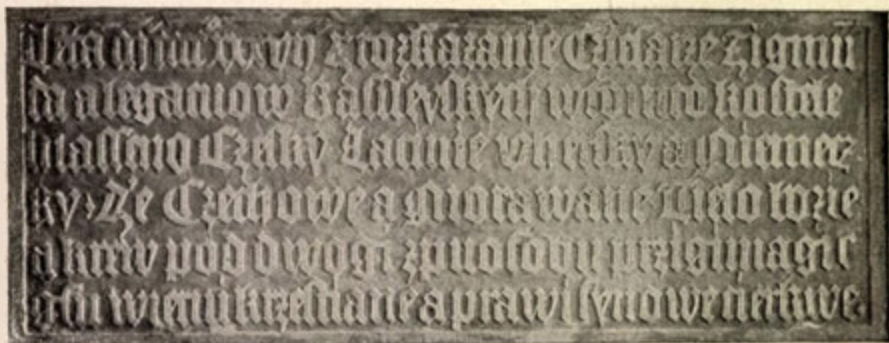 z rozkazanie Czisarze Zigmu
da a legatuow Basileyskych w tomto kostele
Czesky Latinie Uhersky a Niemecz
ky Ze Czechowe a Morawane Tielo bozie
a krew pod dwogi zpuosobu przigimagic
gsu wierni krzestiane a prawi synowe cierkwe.